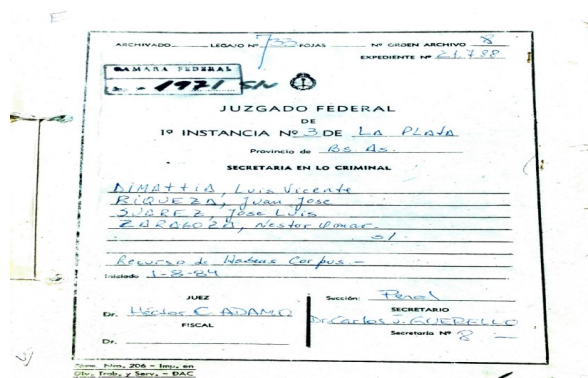 ARCHIVADO LEGAJO Nº 733 FOJAS Nº ORDEN ARCHIVO 8
EXPEDIENTE Nº 21.788
CAMARA FEDERAL
1971 S/N
JUZGADO FEDERAL
DE
1º INSTANCIA Nº 3 DE LA PLATA
Provincia de Bs. As.
SECRETARIA EN LO CRIMINAL
DIMATTIA, Luis Vicente
RIQUEZA, Juan Jose
SUAREZ, Jose Luis
ZARAGOZA, Nestor Omar
s/
Recurso de Habeas Corpus.-
Iniciado 1-8-84
JUEZ
Dr. Héctor C. ADAMO
FISCAL
Dr.
Sección: Penal
SECRETARIO
Dr. Carlos J. GUERELLO
Secretaría Nº 8
Núm. 206 - Imp. en
Div. Trab. y Serv. - DAC